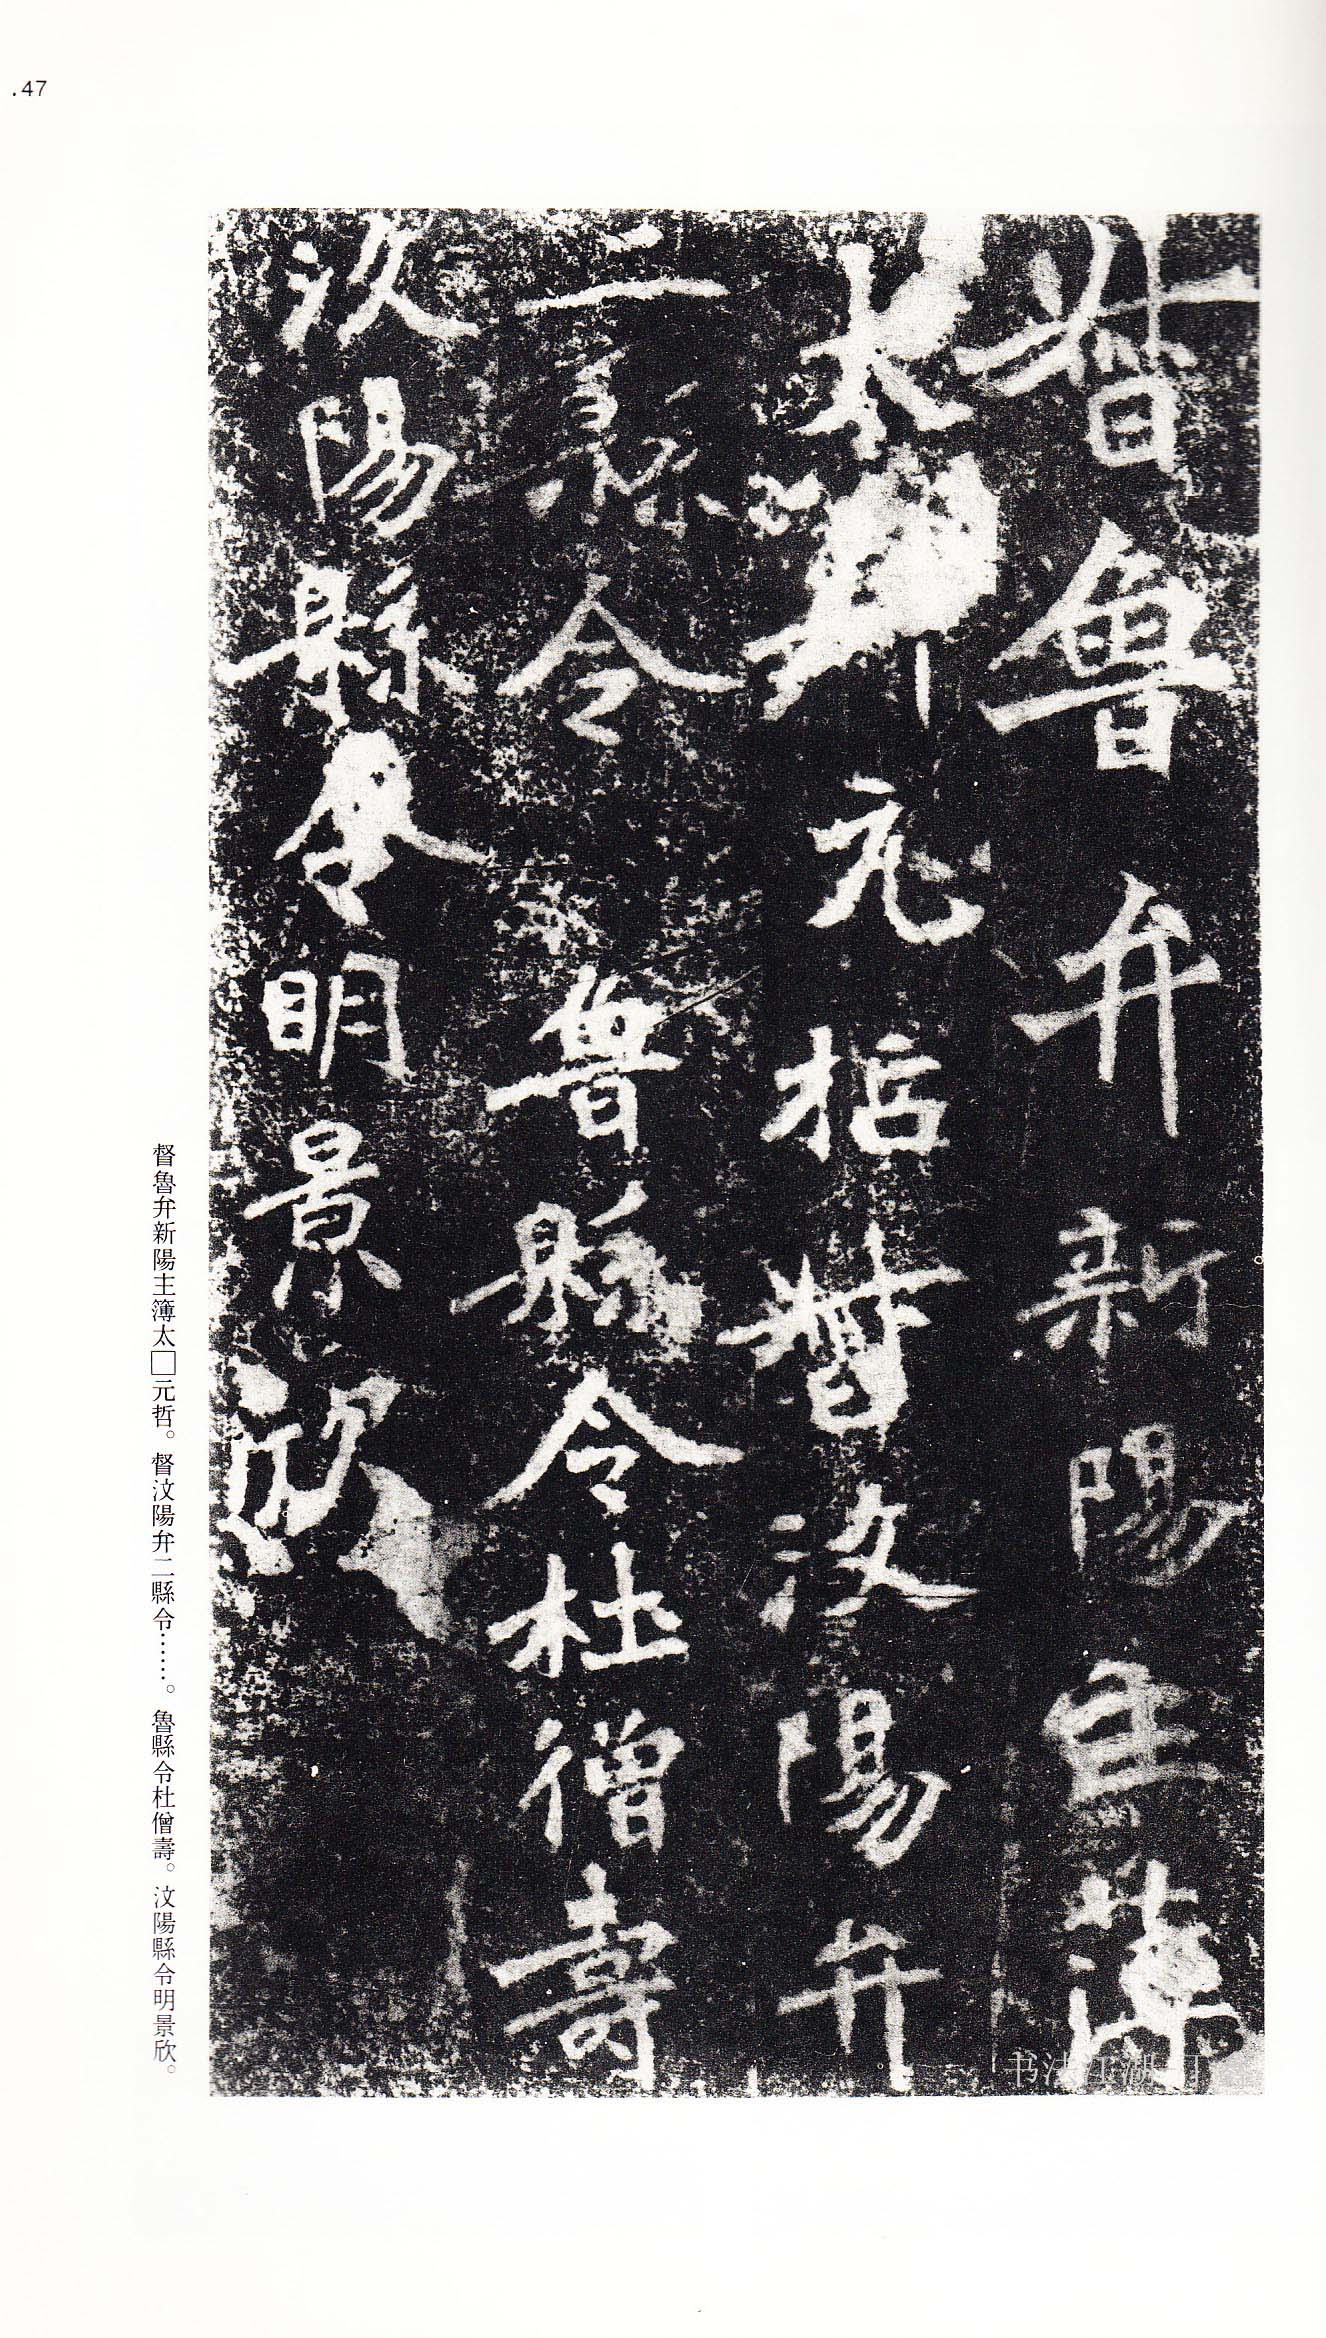 .47
督魯弁新陽主簿
太元哲督汶陽弁
二縣令魯縣令杜僧壽
汶陽縣令明景欣
督魯弁新陽主簿太□元哲。督汶陽弁二縣令……。魯縣令杜僧壽。汶陽縣令明景欣。
书法江湖